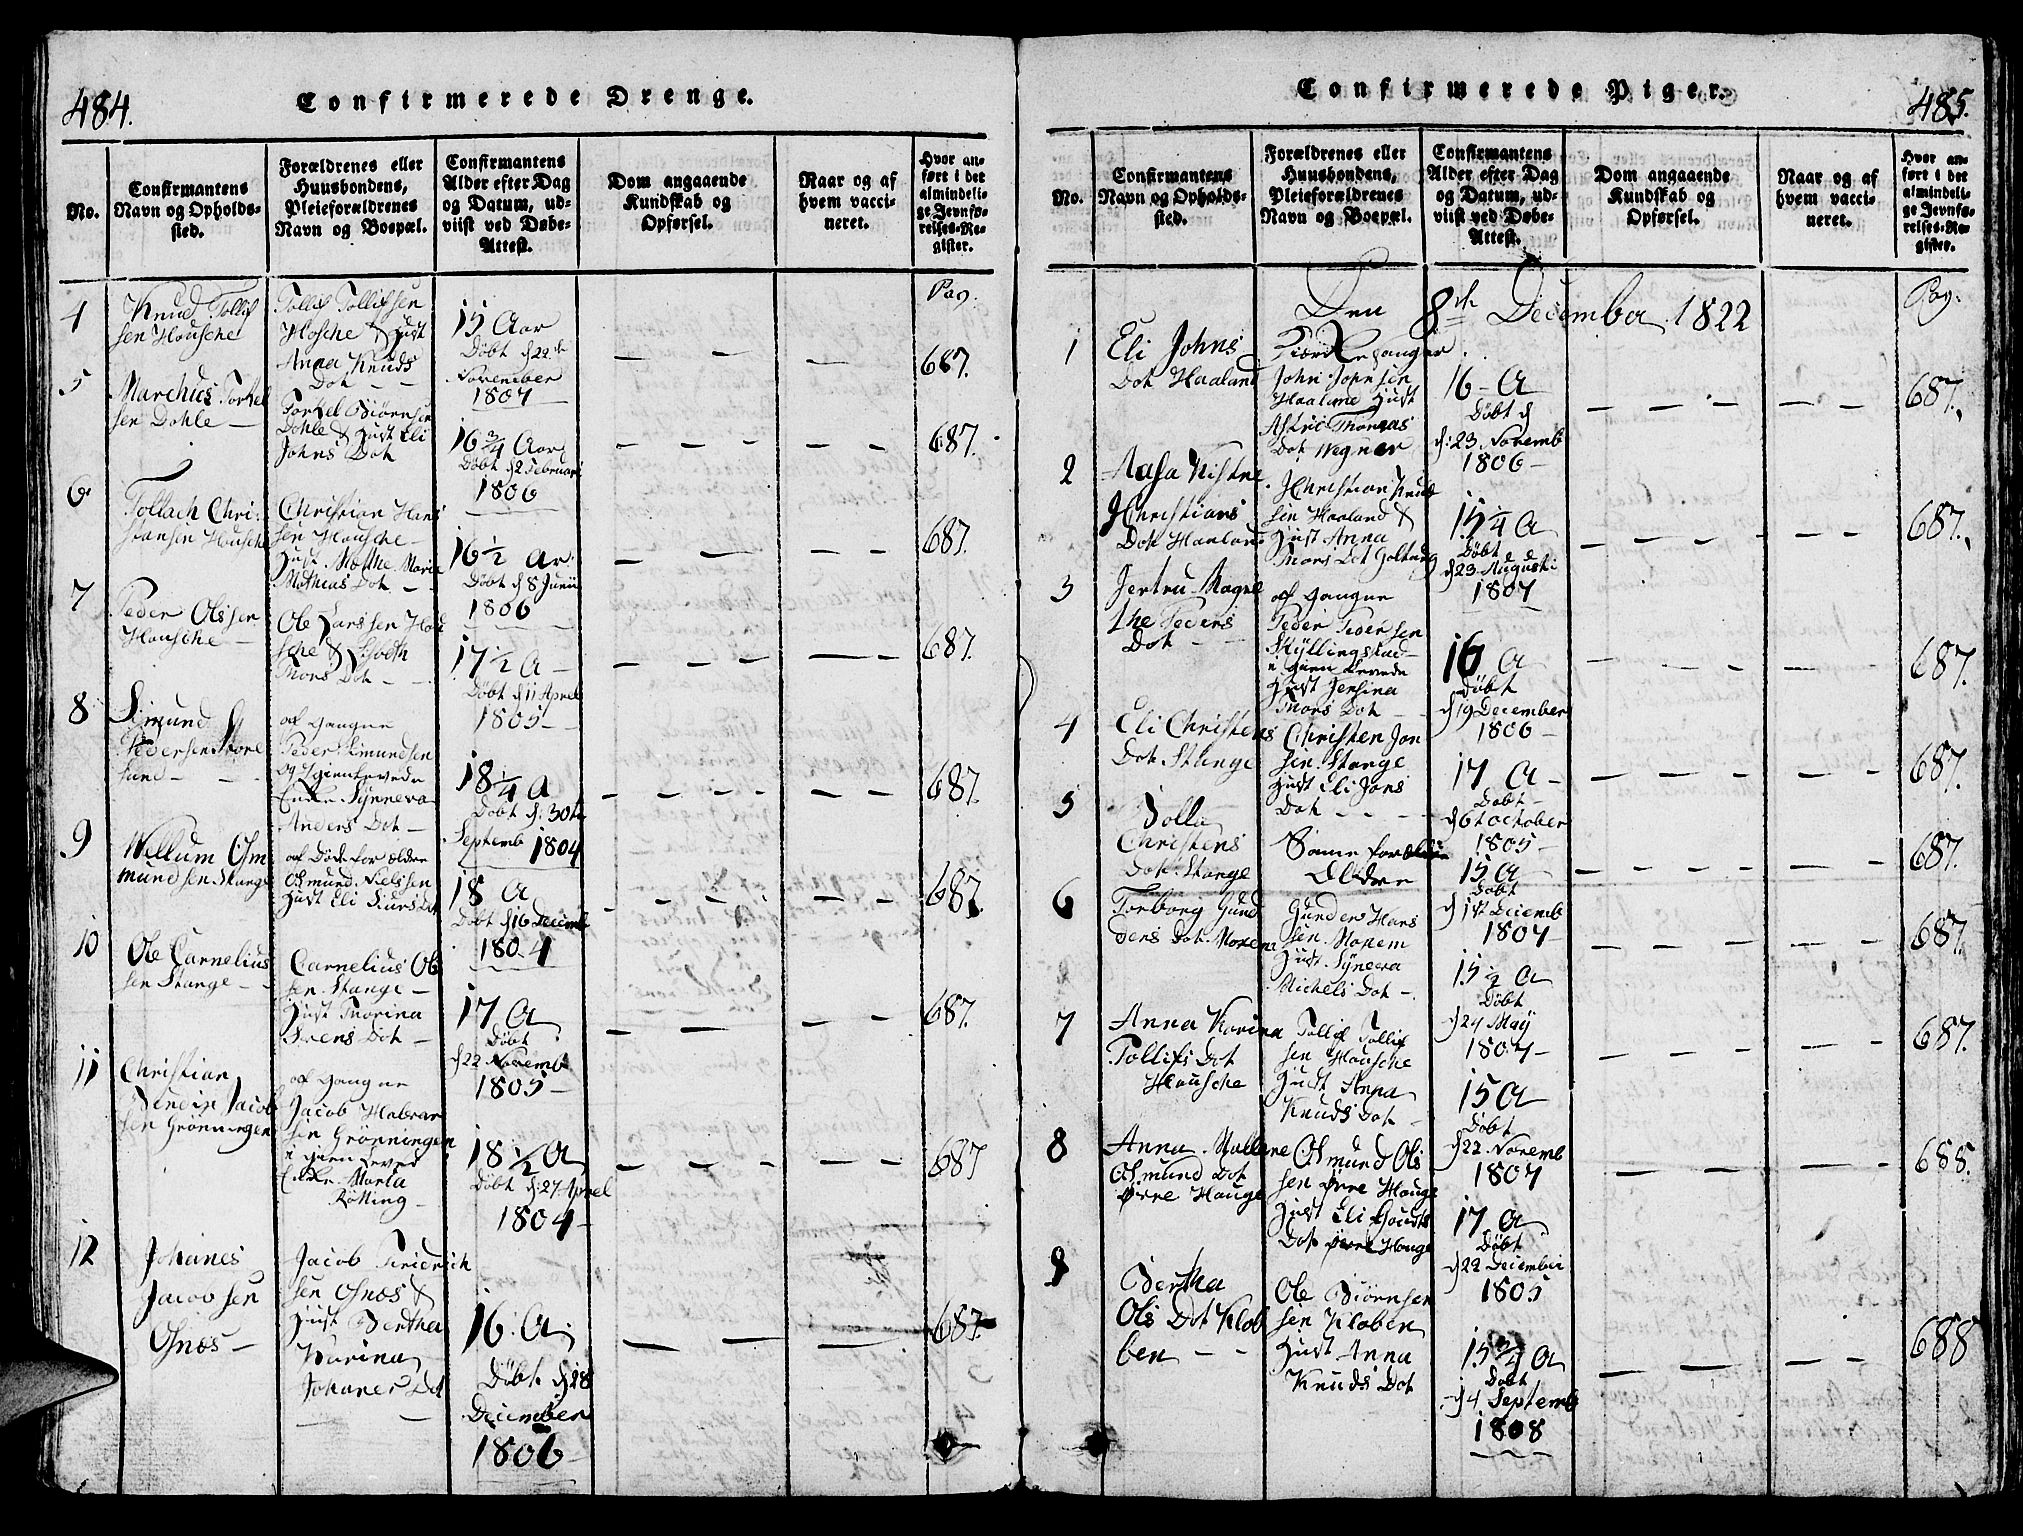 484.
Confirmerede Drenge.
No.
Confirmantens
Navn og Opholds-
sted.
Forældrenes eller
Huusbondens,
Pleieforældrenes
Navn og Boepæl.
Confirmantens
Alder efter Dag
og Datum, ud-
viist ved Døbe-
Attest.
Dom angaaende
Kundskab og
Opførsel.
Naar og af
hvem vacci-
neret.
Hvor an-
ført i det
almindeli-
ge Jevnfø-
relses-Re-
gister.
Pag.
4
Knud Tollif
sen Housche
Tollif Tollifsen
Hosche & Hust
Anna Knuds
Dot
15 Aar
Døbt d 22de
November
1807
687.
5
Marchus Torkel
sen Dohle
Torkel Biørnsen
Dohle & Hust Eli
Johns Dot
16 3/4 Aar
Døbt d 2 Februari
1806
687.
6
Tollach Chri-
stansen Housche
Christian Hans
sen Housche
Hust Marthe Marie
Mathias Dot
16 1/2 Ar
Døbt d 8 Junii
1806
687.
7
Peder Olssen
Housche
Ole Larssen Hou
sche &
Thors Dot
17 1/2 A
Døbt d 11 Aprel
1805
687.
8
Simund
Pedersen Store
sund
af Gangne
Peder Simundsen
og Igienlevede
Enke Synneva
Anders Dot
18 1/4 A
Døbt d: 30te
Septemb 1804
687.
9
Willum Osm
mundsen Stange
af Døde for ældre
Osmund Nielssen
Hust Eli Siurs Dot
18 A
Døbt d 16 Decemb
1804
687.
10
Ole Carnelius
sen Stange
Carnelius Ols
sen Stange
Hust Thorina
Sørens Dot
17 A
Døbt
d 22 Novemb
1805
687.
11
Christian
Sendin Jacob
sen Grønningen
af Gangne
Jacob Halvar
sen Grønningen
i gien Leved
Enke Marta
Kølling
18 1/2 A
Døbt d: 27 Aprel
1804
687
12
Johanes
Jacobsen
Osnes
Jacob Fridrich
sen Osnes &
Hust Bertha
Karina
Johanes Dot
16 A
Døbt d 28
December
1806
687.
485.
Confirmerede Piger.
No.
Confirmantens
Navn og Opholds-
sted.
Forældrenes eller
Huusbondens,
Pleieforældrenes
Navn og Boepæl.
Confirmantens
Alder efter Dag
og Datum, ud-
viist ved Døbe-
Attest.
Dom angaaende
Kundskab og
Opførsel.
Naar og af
hvem vacci-
neret.
Hvor an-
ført i det
almindeli-
ge Jevnfø-
relses-Re-
gister.
Den 8de December 1822
Pag.
1
Eli Johns
Dot Haaland
John Johnsen
Haaland Hust
Astrie Thomas
Dot Wegner
16 A
Døbt d
d: 23 Novemb
1806
687.
2
Aasa Kistne
Christians
Dot Haaland
Christian Knud
sen Haaland &
Hust Anna
Thors Dot
15 1/4 A
Døbt
d 23 Augusti
1807
687.
3
Jertru Magne
the Peders
Dot
af Gangne
Peder Pedersen
Kyllingstad
i gien Levede
Hust Jensina
Thors Dot
16 A
Døbt
d 19 December
1806
687.
4
Eli Christens
Dot Stange
Christen Jon
sen Stange
Hust Eli Jons
Dot
17 A
Døbt
d 6t October
1805
687.
5
Christens
Dot Stange
Same for
Ældre
15 A
Døbt
d 1st Decemb
1807
687.
6
Torborg Gund
ders Dot Morem
Gunder Hans
sen Morem
Hust Syneva
Michels Dot
15 1/2 A
Døbt
d 24 May
1807
687.
7
Anna Karina
Tollifs Dot
Housche
Tollif Tollif
sen Housche
Hust Anna
Knuds Dot
15 A
Døbt
d 22 Novemb
1807
687.
8
Anna Mallene
Osmund Dot
Øvre Houge
Osmund Ols
sen Øvre Houge
Hust Eli Gouds
Dot Øvre Houge
17 A
Døbt
d 22 December
1805
688.
9
Bertha
Ols Dot Klob
ben
Ole Biørnsen
sen Kloben
Hust Anna
Knuds Dot
15 3/4 A
Døbt
d 4 Septemb
1808
688